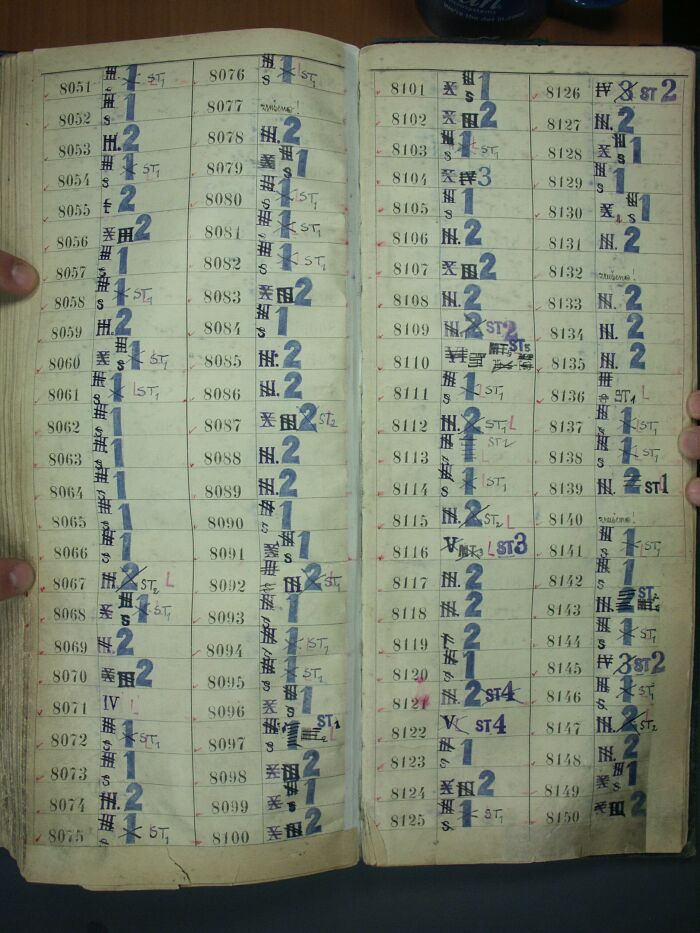 8051 III S 1 ST1
8052 III S 1
8053 III. 2
8054 III S 1 ST1
8055 2
8056 X III 2
8057 III S 1
8058 III S 1 ST1
8059 III. 2
8060 X III S 1 ST1
8061 III S 1 LST1
8062 III S 1
8063 III S 1
8064 III S 1
8065 III S 1
8066 III S 1
8067 III. 2 ST2 L
8068 X III S 1 ST1
8069 III. 2
8070 X III 2
8071 IV L
8072 III S 1 ST1
8073 III S 1
8074 III. 2
8075 III S 1 ST1
8076 III S 1 LST1
8077 zrušeno!
8078 III. 2
8079 X III S 1
8080 III S 1 LST1
8081 III S 1 ST1
8082 III S 1 ST1
8083 X III 2
8084 III S 1
8085 III. 2
8086 III. 2
8087 X III 2 ST2
8088 III. 2
8089 III. 2
8090 III S 1
8091 X III S 1
8092 III 2 ST1
8093 III S 1
8094 III S 1 ST1
8095 III S 1 ST1
8096 X III S 1
8097 ST1 L
8098 X III 2
8099 X III S 1
8100 X III 2
8101 X III S 1
8102 X III 2
8103 III S 1 ST1
8104 X IV 3
8105 III S 1
8106 III. 2
8107 X III 2
8108 III. 2
8109 III. 2 ST2
8110 ST5
8111 III S 1 ST1
8112 III. 2 ST1 L
8113 ST2 L
8114 III S 1 LST1
8115 III. 2 ST2 L
8116 V L ST3
8117 III. 2
8118 III. 2
8119 2
8120 III S 1
8121 III. 2 ST4
8122 V ST4
8123 III S 1
8124 X III 2
8125 III S 1 ST1
8126 IV 3 ST2
8127 III. 2
8128 X III S 1
8129 III S 1
8130 X III S 1
8131 III. 2
8132 zrušeno!
8133 III. 2
8134 III. 2
8135 III. 2
8136 III ST1 L
8137 III S 1 LST1
8138 III S 1 ST1
8139 III. 2 ST1
8140 zrušeno!
8141 III S 1 LST1
8142 III S 1
8143 III. 2 ST
8144 III S 1 ST1
8145 IV 3 ST2
8146 III S 1 ST1
8147 III. 2 ST2
8148 III. 2
8149 X III S 1
8150 X III 2